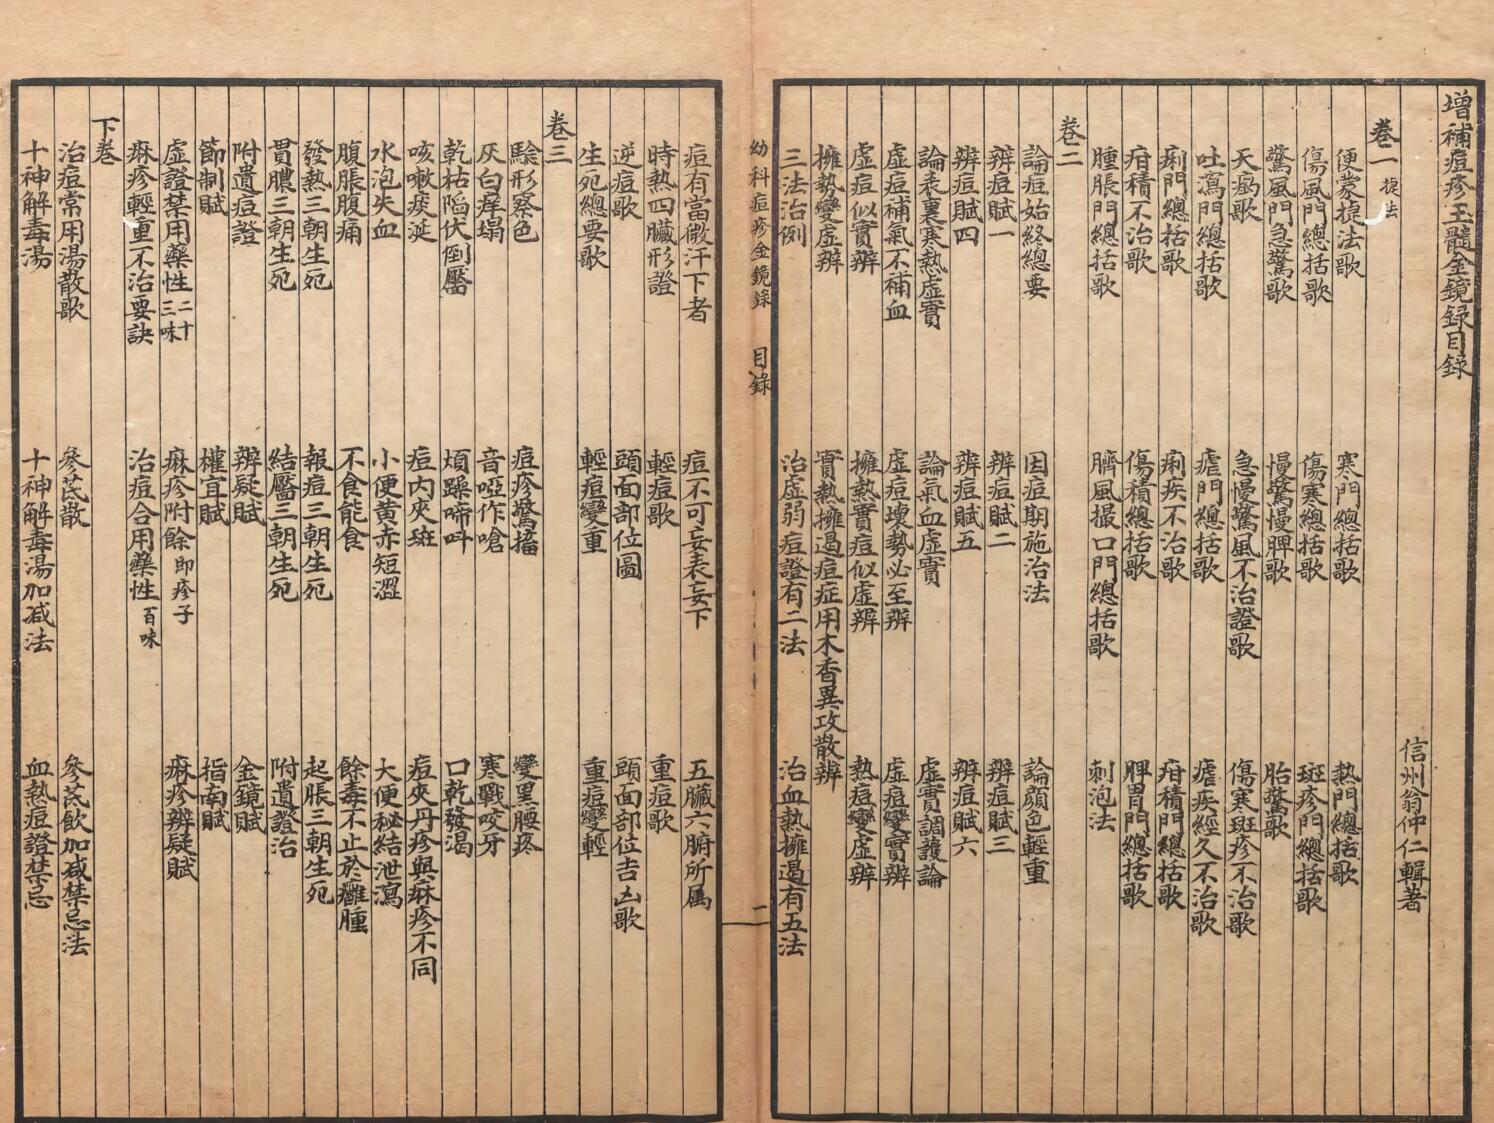 增補痘疹玉髓金鏡錄目錄
信州翁仲仁輯著
卷一 㨗法
便蒙㨗法歌 寒門總括歌 熱門總括歌
傷風門總括歌 傷寒總括歌 斑疹門總括歌
驚風門急驚歌 慢驚慢脾歌 胎驚歌
天烏歌 急慢驚風不治證歌 傷寒斑疹不治歌
吐瀉門總括歌 瘧門總括歌 瘧疾經久不治歌
痢門總括歌 痢疾不治歌 疳積門總括歌
疳積不治歌 傷積總括歌 脾胃門總括歌
腫脹門總括歌 臍風撮口門總括歌 刺泡法
卷二
論痘始終總要 因痘期施治法 論顏色輕重
辨痘賦一 辨痘賦二 辨痘賦三
辨痘賦四 辨痘賦五 辨痘賦六
論表裏寒熱虛實 論氣血虛實 虛實調護論
虛痘補氣不補血 虛痘壞勢必至辨 虛痘變實辨
虛痘似實辨 擁熱實痘似虛辨 熱痘變虛辨
擁熱變虛辨 實熱擁遏痘症用木香異攻散辨
三法治例 治虛弱痘證有二法 治血熱擁遏有五法
幼科痘疹金鏡錄 目錄 二
痘有當僌汗下者 痘不可妄表妄下 五臟六腑所属
時熱四臟形證 輕痘歌 重痘歌
逆痘歌 頭面部位圖 頭面部位吉凶歌
生死總要歌 輕痘變重 重痘變輕
卷三
驗形察色 痘疹驚搐 變黑腰疼
灰白痒塌 音啞作嗆 寒戰咬牙
乾枯陷伏倒靨 煩躁啼呌 口乾發渴
咳嗽痰涎 痘内夾斑 痘夾丹疹與痳疹不同
水泡失血 小便黄赤短澀 大便秘結泄瀉
腹脹腹痛 不食能食 餘毒不止於癰腫
發熱三朝生死 報痘三朝生死 起脹三朝生死
貫膿三朝生死 結靨三朝生死 附遺證治
附遺痘證 辨疑賦 金鏡賦
節制賦 權宜賦 指南賦
虛證禁用藥性 二十三味 痳疹附餘 即疹子 痳疹辨疑賦
痳疹輕重不治要訣 治痘合用藥性 百味
下卷
治痘常用湯散歌 參芪散 參芪飲加减禁忌法
十神解毒湯 十神解毒湯加减法 血熱痘證禁忌